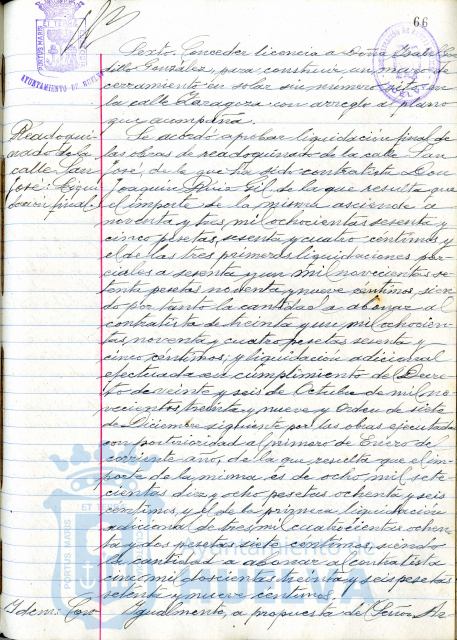 66
PORTUS MARIS
AYUNTAMIENTO DE HUELVA
Sexto. Conceder licencia a Doña Isabel
dillo González, para construir un muro de
cerramiento en solar sin número sito en
la calle Zaragoza con arreglo a plano
que acompaña.
Readoqui-
nado de la
calle San
José: Liqui
dación final.
Se acordó aprobar liquidación final de
las obras de readoquinado de la calle San
José, de la que ha sido contratista Don
Joaquin Gil de la que resulta que
el importe de la misma asciende a
noventa y tres mil ochocientas sesenta y
cinco pesetas, sesenta y cuatro centimos y
el de las tres primeras liquidaciones par-
ciales a sesenta y un mil novecientas se-
tenta pesetas noventa y nueve centimos, sien-
do por tanto la cantidad a abonar al
contratista de treinta y un mil ochocien-
tas, noventa y cuatro pesetas sesenta y
cinco centimos, y liquidación adicional
efectuada en cumplimiento del Decre-
to de veinte y seis de Octubre de mil no-
vecientos treinta y nueve y Orden de siete
de Diciembre siguiente por las obras ejecutadas
con posterioridad al primero de Enero del
corriente año, de la que resulta que el im-
porte de la misma es de ocho mil sete-
cientas diez y ocho pesetas ochenta y seis
centimos, y el de la primera liquidación
adicional de tres mil cuatrocientas ochen-
ta y dos pesetas siete centimos siendo
la cantidad a abonar al contratista
cinco mil doscientas treinta y seis pesetas
setenta y nueve centimos.
Idem:
Igualmente, a propuesta del Señor Ar-
PORTUS MARIS
ET TE
Ayuntamiento de
HUELVA